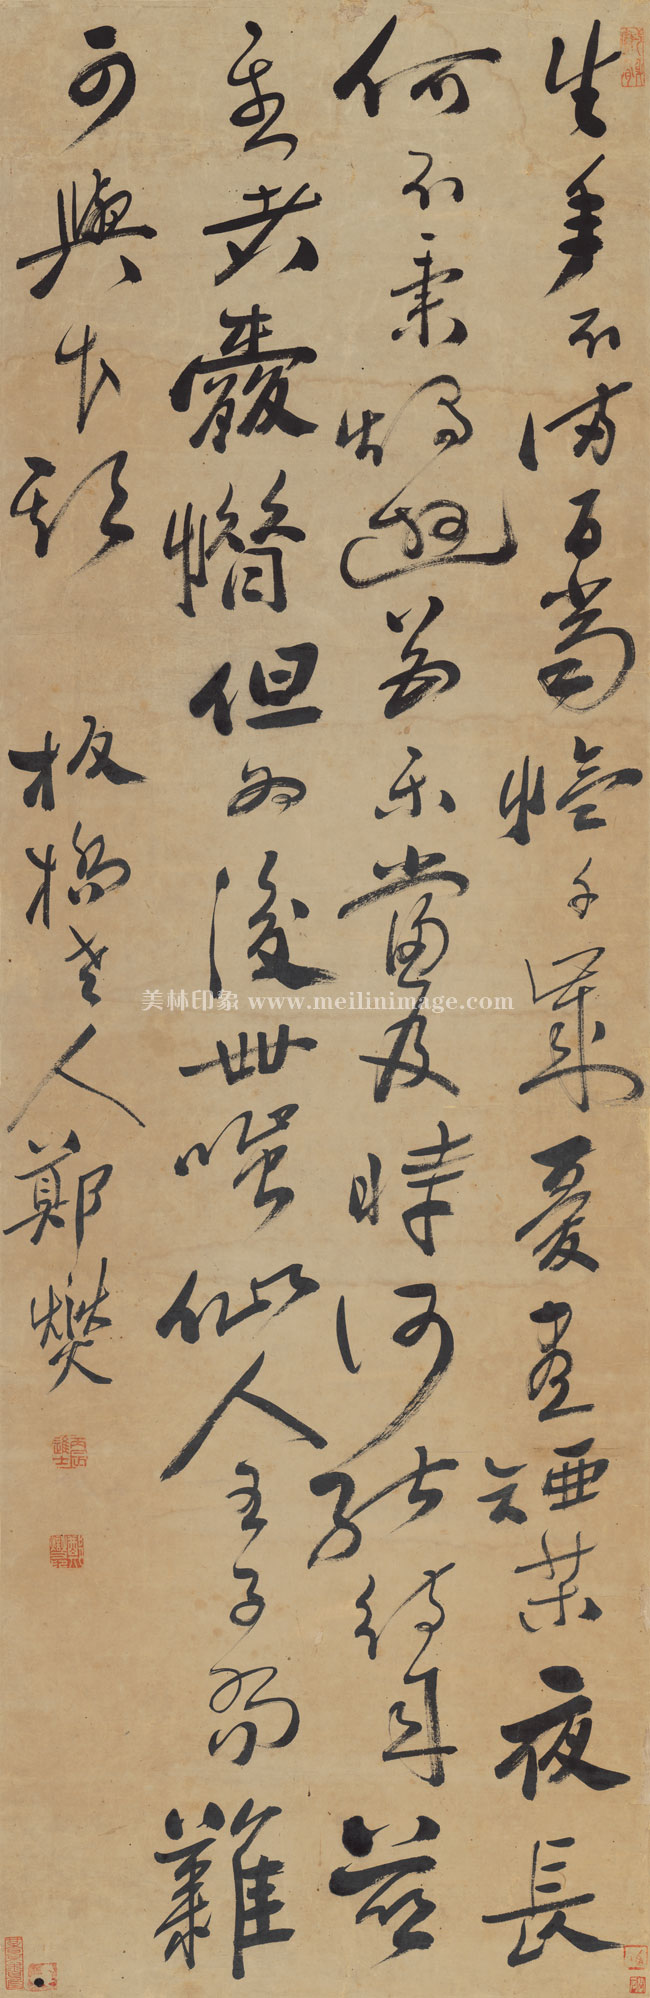 生年不滿百常懷千歲憂晝短苦夜長
何不秉燭遊為樂當及時何能待來茲
愚者愛惜但為後世嗤仙人王子喬難
可與等期 板橋老人鄭燮
美林印象 www.meilinimage.com